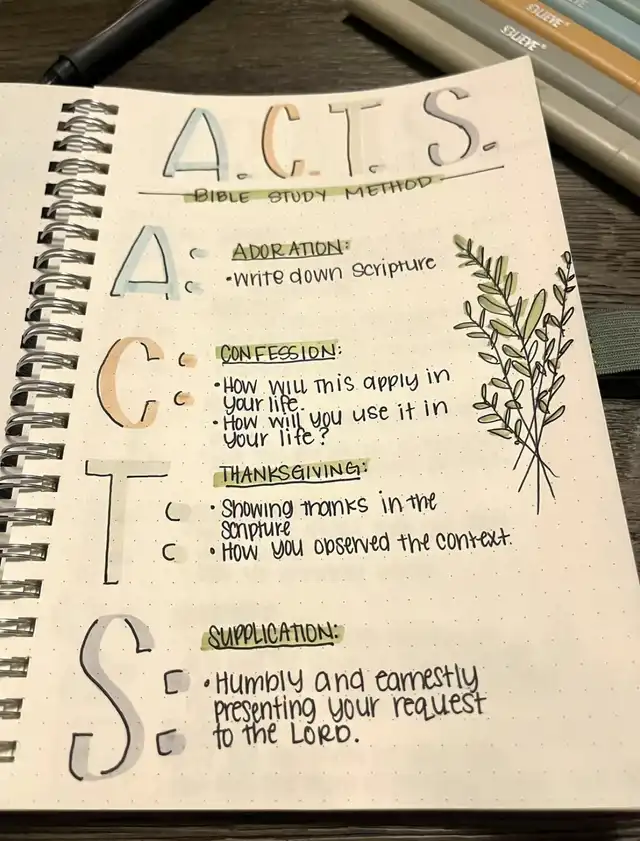 A.C.T.S.
BIBLE STUDY METHOD
A:
ADORATION:
•Write down Scripture
C:
CONFESSION:
•How will this apply in
your life.
•How will you use it in
your life?
T:
THANKSGIVING:
•Showing thanks in the
scripture
•How you observed the context.
S:
SUPPLICATION:
•Humbly and earnestly
presenting your request
to the LORD.